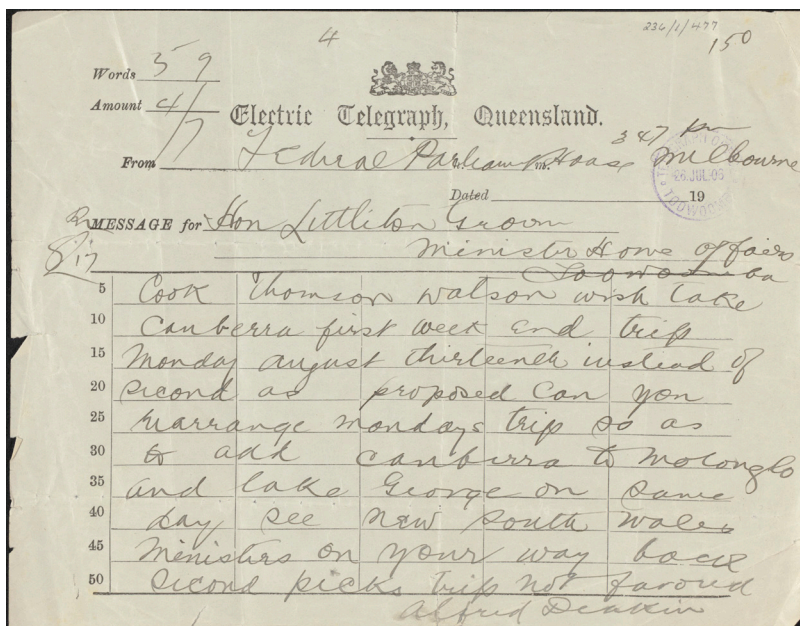 236/1/477
4
150
Words 59
Amount 4/7
Electric Telegraph, Queensland.
347 pm
From Federal Parliamt House Melbourne
26 JUL 06
Dated 19
MESSAGE for Hon Littleton Groom
Minister Home affairs
Toowoomba
5 Cook Thomson watson wish take
10 Canberra first week end trip
15 Monday august thirteenth instead of
20 second as proposed can you
25 rearrange mondays trip so as
30 to add canberra to molonglo
35 and lake George on same
40 day see new south wales
45 Ministers on your way back
50 second picks trip not favored
Alfred Deakin